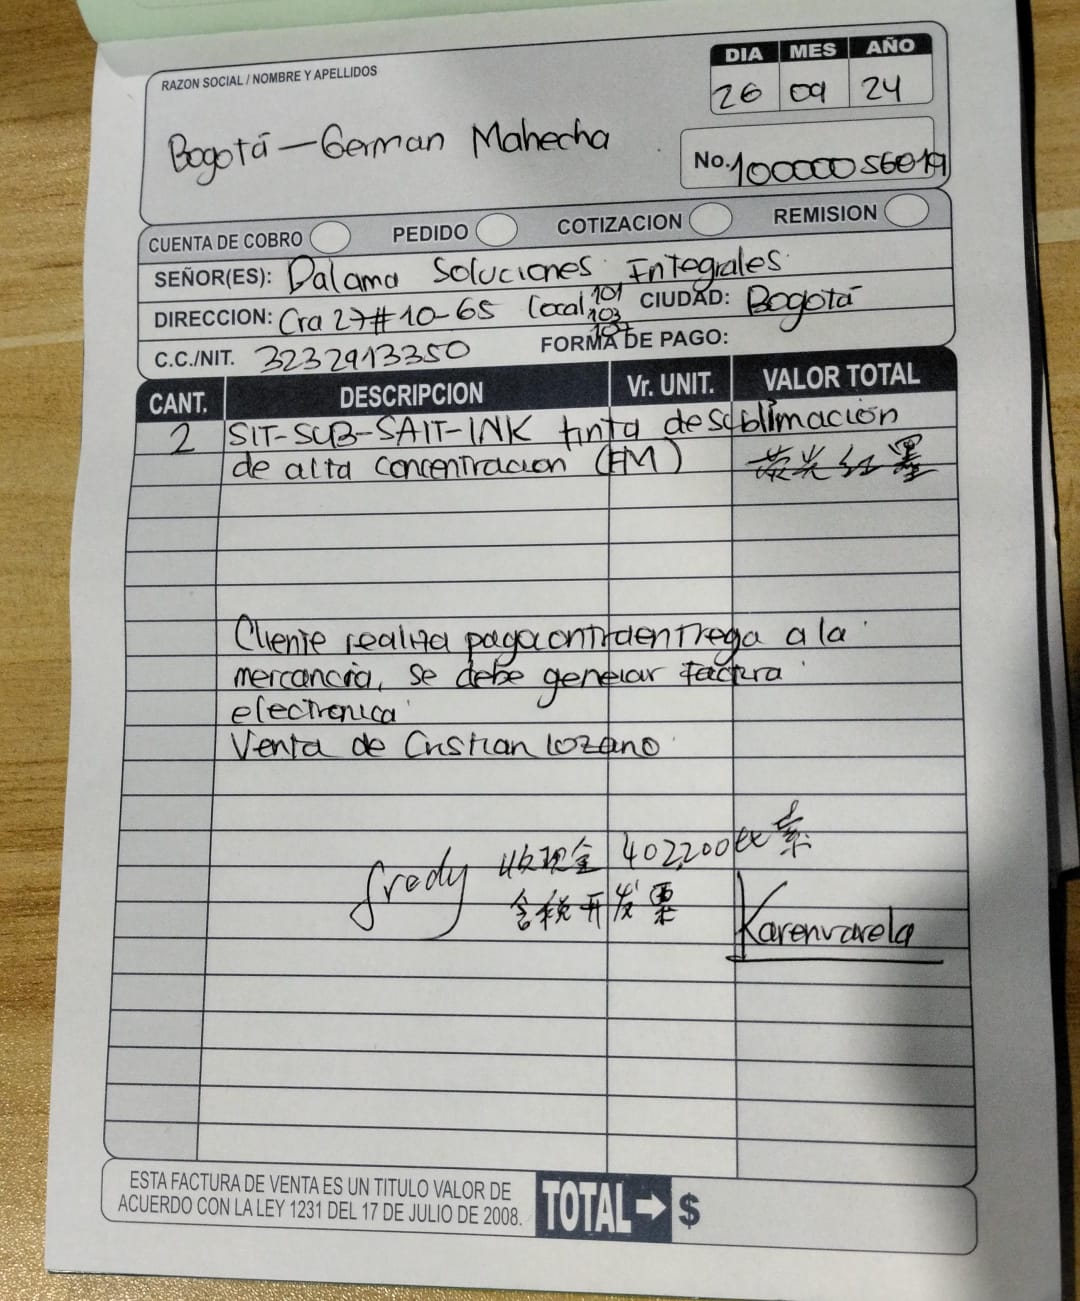 RAZON SOCIAL / NOMBRE Y APELLIDOS
DIA MES AÑO
26 09 24
Bogotá - German Mahecha
No. 10000056019
CUENTA DE COBRO PEDIDO COTIZACION REMISION
SEÑOR(ES): Dalama Soluciones Integrales
DIRECCION: Cra 27#10-65 local 101 103 107 CIUDAD: Bogotá
C.C./NIT. 3232913350 FORMA DE PAGO:
CANT. DESCRIPCION Vr. UNIT. VALOR TOTAL
2 SIT-SUB-SAIT-INK tinta de sublimación
de alta concentracion (FM) 荧光红墨
Cliente realiza pagacontraentrega a la
mercancia, se debe generar factura
electronica
Venta de Cristian lozano
fredy 收现金 402,200
含税开发票
Karenvarela
ESTA FACTURA DE VENTA ES UN TITULO VALOR DE
ACUERDO CON LA LEY 1231 DEL 17 DE JULIO DE 2008.
TOTAL→ $